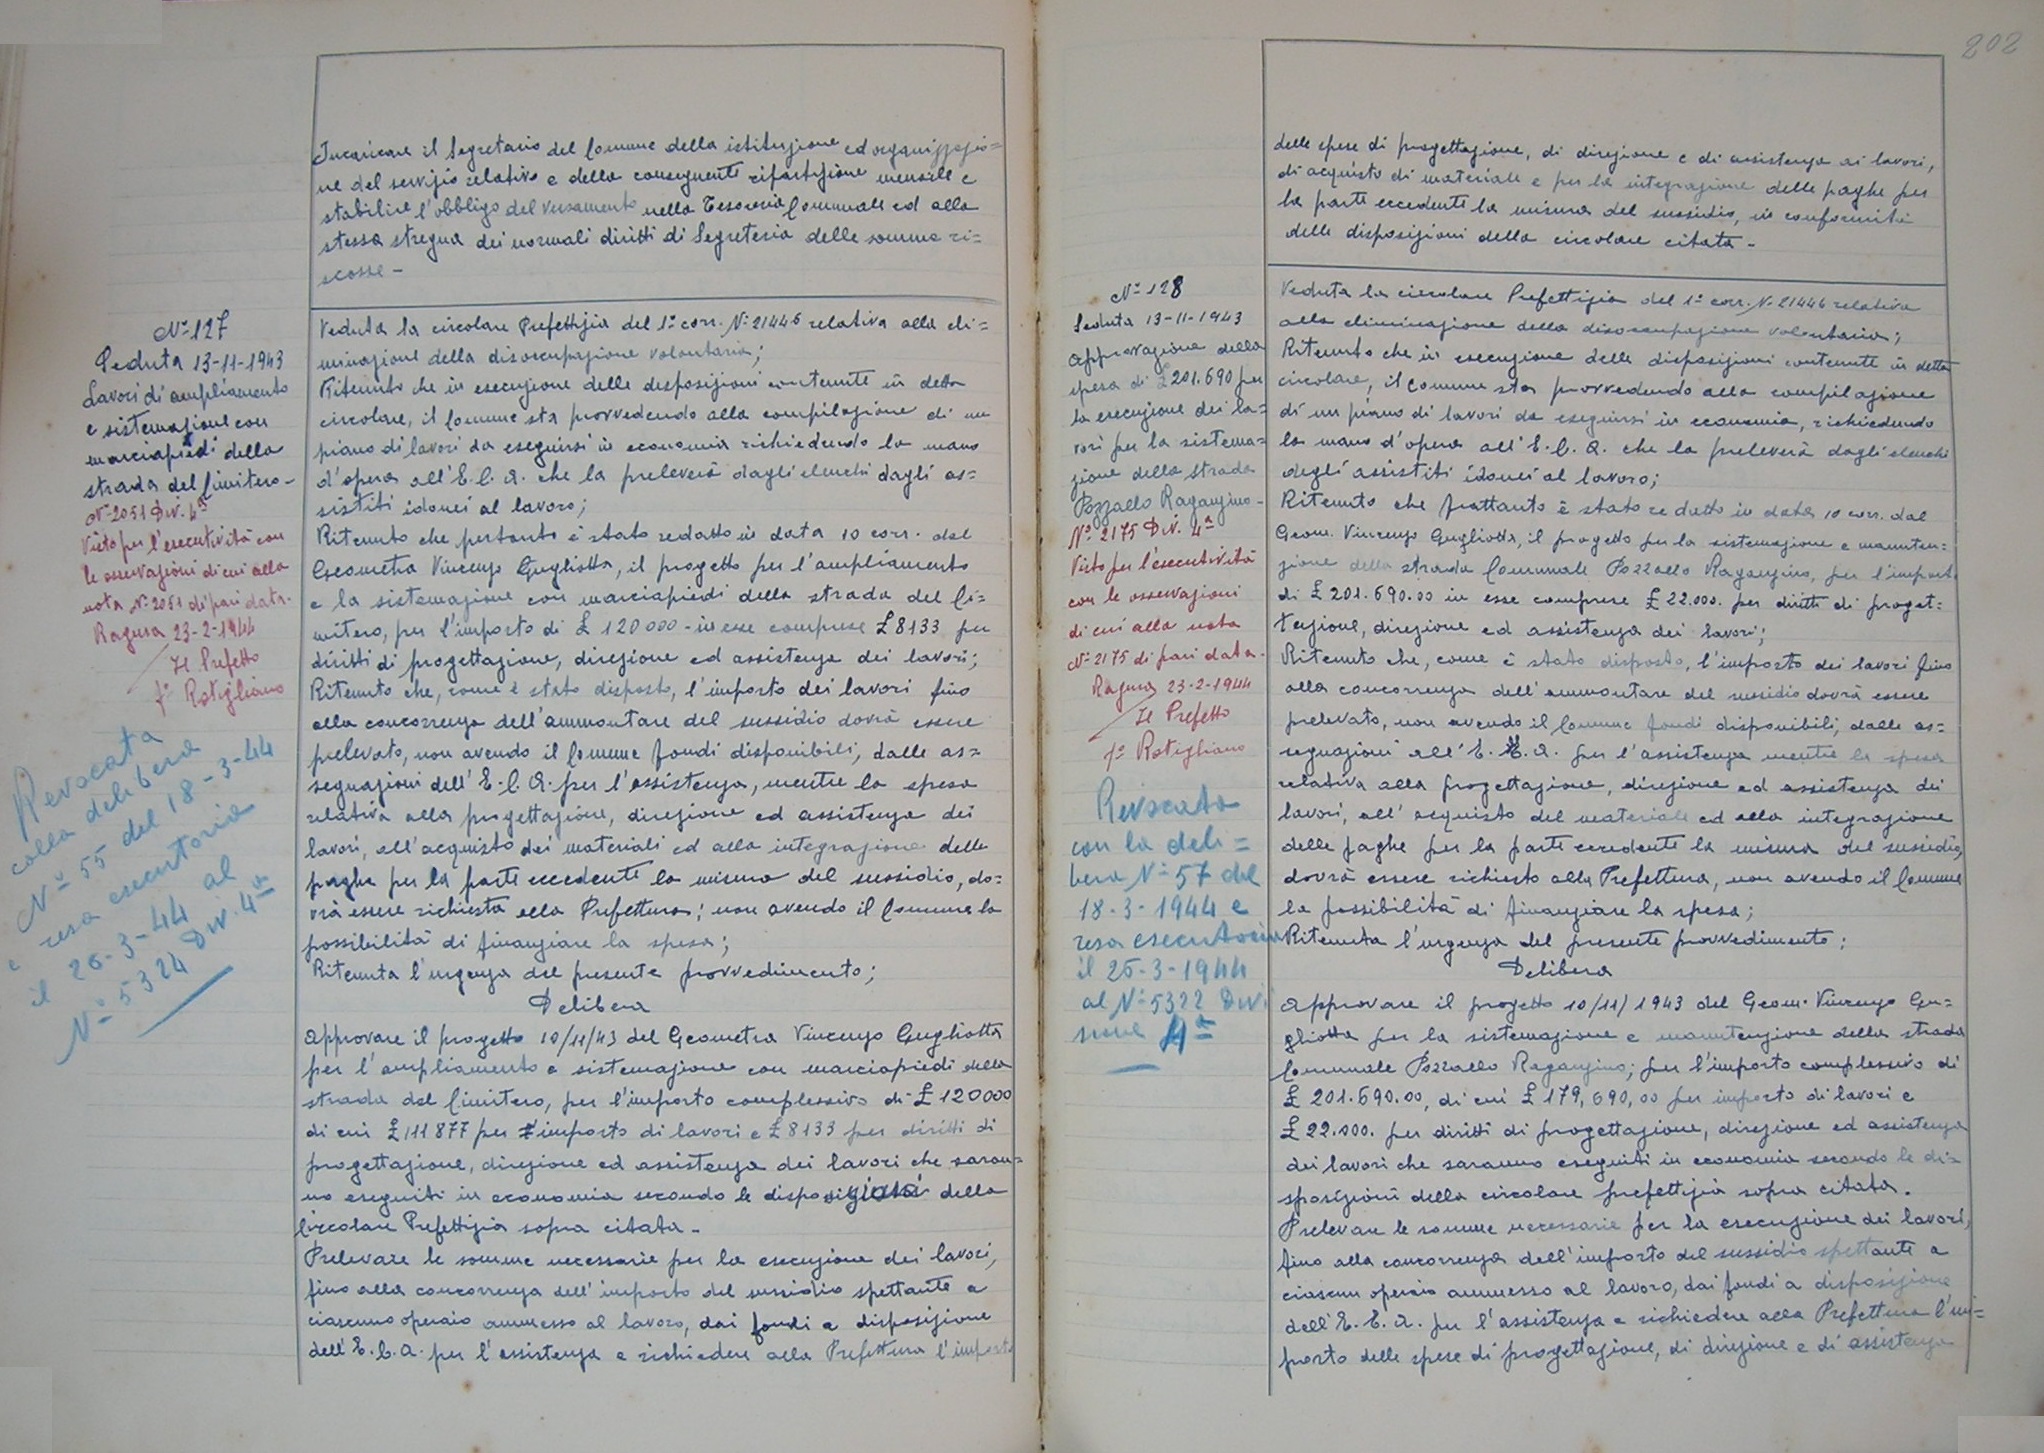 Incaricare il Segretario del Comune della istituzione ed organizzazio=
ne del servizio relativo e della conseguente ripartizione mensile e
stabilire l'obbligo del versamento nella Tesoreria Comunale ed alla
stessa stregua dei normali diritti di Segreteria delle somme ri=
scosse -
No 127
Seduta 13-11-1943
Lavori di ampliamento
e sistemazione con
marciapiedi della
strada del Cimitero -
No 2051 Div. 4a
Visto per l'esecutività con
le osservazioni di cui alla
nota No 2051 di pari data.
Ragusa 23-2-1944
Il Prefetto
fo Rotigliano
Revocata
colla delibera
No 55 del 18-3-44
e resa esecutoria
il 26-3-44 al
No 5324 Div. 4a
Veduta la circolare Prefettizia del 1o corr. No 21446 relativa alla eli=
minazione della disoccupazione volontaria;
Ritenuto che in esecuzione delle disposizioni contenute in detta
circolare, il Comune sta provvedendo alla compilazione di un
piano di lavori da eseguirsi in economia richiedendo la mano
d'opera all'E.C.A. che la preleverà dagli elenchi dagli as=
sistiti idonei al lavoro;
Ritenuto che pertanto è stato redatto in data 10 corr. dal
Geometra Vincenzo Gugliotta, il progetto per l'ampliamento
e la sistemazione con marciapiedi della strada del Ci=
mitero, per l'importo di £ 120000 - in esse comprese £ 8133 per
diritti di progettazione, direzione ed assistenza dei lavori;
Ritenuto che, come è stato disposto, l'importo dei lavori fino
alla concorrenza dell'ammontare del sussidio dovrà essere
prelevato, non avendo il Comune fondi disponibili, dalle as=
segnazioni dell'E.C.A. per l'assistenza, mentre la spesa
relativa alla progettazione, direzione ed assistenza dei
lavori, all'acquisto dei materiali ed alla integrazione delle
paghe per la parte eccedente la misura del sussidio, do=
vrà essere richiesta alla Prefettura; non avendo il Comune la
possibilità di finanziare la spesa;
Ritenuta l'urgenza del presente provvedimento;
Delibera
Approvare il progetto 10/11/43 del Geometra Vincenzo Gugliotta
per l'ampliamento e sistemazione con marciapiedi della
strada del Cimitero, per l'importo complessivo di £ 120000
di cui £ 111877 per importo di lavori e £ 8133 per diritti di
progettazione, direzione ed assistenza dei lavori che saran=
no eseguiti in economia secondo le disposizioni della
Circolare Prefettizia sopra citata -
Prelevare le somme necessarie per la esecuzione dei lavori,
fino alla concorrenza dell'importo del sussidio spettante a
ciascuno operaio ammesso al lavoro, dai fondi a disposizione
dell'E.C.A. per l'assistenza e richiedere alla Prefettura l'importo
202
delle spese di progettazione, di direzione e di assistenza ai lavori,
di acquisto di materiale e per la integrazione delle paghe per
la parte eccedente la misura del sussidio, in conformità
delle disposizioni della circolare citata -
No 128
Seduta 13-11-1943
Approvazione della
spesa di £ 201.690 per
la esecuzione dei la=
vori per la sistema=
zione della strada
Pozzallo Raganzino -
No 2175 Div. 4a
Visto per l'esecutività
con le osservazioni
di cui alla nota
No 2175 di pari data.
Ragusa 23-2-1944
Il Prefetto
fo Rotigliano
Revocata
con la deli=
bera No 57 del
18-3-1944 e
resa esecutoria
il 26-3-1944
al No 5322 Divi
sione 4a
Veduta la circolare Prefettizia del 1o corr. No 21446 relativa
alla eliminazione della disoccupazione volontaria;
Ritenuto che in esecuzione delle disposizioni contenute in detta
circolare, il Comune sta provvedendo alla compilazione
di un piano di lavori da eseguirsi in economia, richiedendo
la mano d'opera all'E.C.A. che la preleverà dagli elenchi
degli assistiti idonei al lavoro;
Ritenuto che frattanto è stato redatto in data 10 corr. dal
Geom. Vincenzo Gugliotta, il progetto per la sistemazione e manuten=
zione della strada Comunale Pozzallo Raganzino, per l'importo
di £ 201.690.00 in esse comprese £ 22.000. per diritti di proget=
tazione, direzione ed assistenza dei lavori;
Ritenuto che, come è stato disposto, l'importo dei lavori fino
alla concorrenza dell'ammontare del sussidio dovrà essere
prelevato, non avendo il Comune fondi disponibili, dalle as=
segnazioni all'E.C.A. per l'assistenza mentre la spesa
relativa alla progettazione, direzione ed assistenza dei
lavori, all'acquisto del materiale ed alla integrazione
delle paghe per la parte eccedente la misura del sussidio,
dovrà essere richiesto alla Prefettura, non avendo il Comune
la possibilità di finanziare la spesa;
Ritenuta l'urgenza del presente provvedimento;
Delibera
Approvare il progetto 10/11/1943 del Geom. Vincenzo Gu=
gliotta per la sistemazione e manutenzione della strada
Comunale Pozzallo Raganzino; per l'importo complessivo di
£ 201.690.00, di cui £ 179,690,00 per importo di lavori e
£ 22.000. per diritti di progettazione, direzione ed assistenza
dei lavori che saranno eseguiti in economia secondo le di=
sposizioni della circolare prefettizia sopra citata.
Prelevare le somme necessarie per la esecuzione dei lavori,
fino alla concorrenza dell'importo del sussidio spettante a
ciascun operaio ammesso al lavoro, dai fondi a disposizione
dell'E.C.A. per l'assistenza e richiedere alla Prefettura l'im=
porto delle spese di progettazione, di direzione e di assistenza